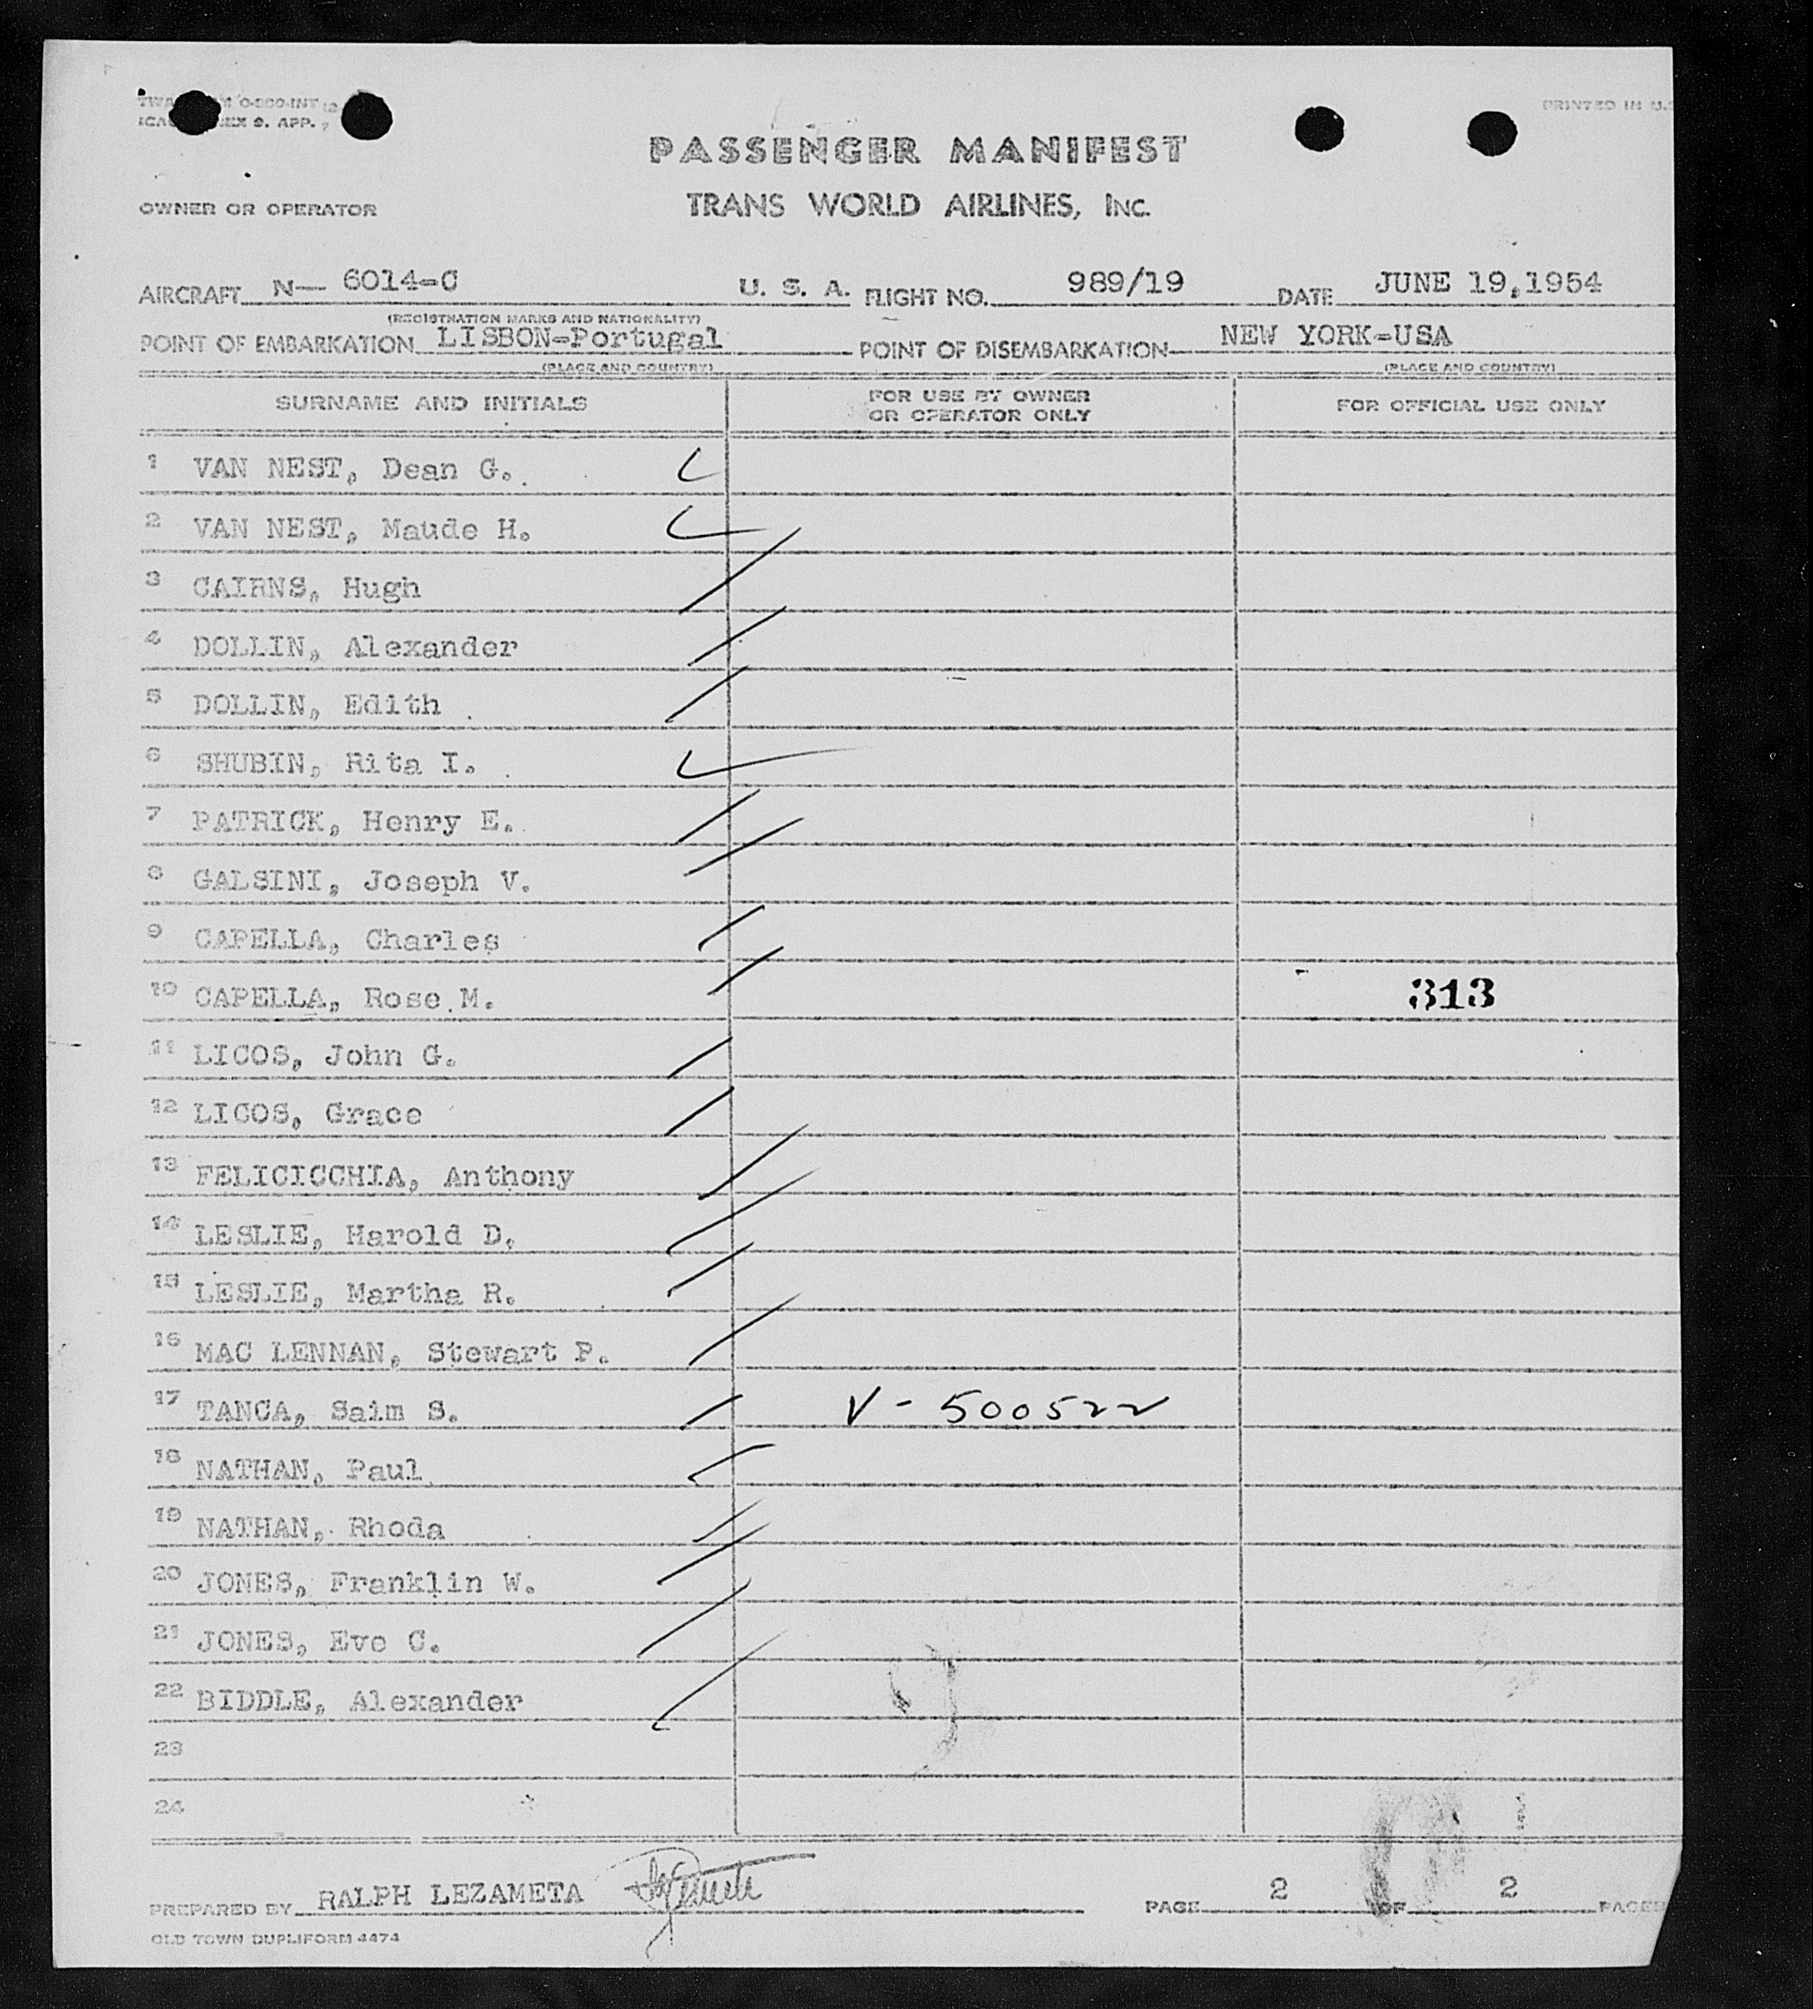 PRINTED IN U.S
PASSENGER MANIFEST
OWNER OR OPERATOR TRANS WORLD AIRLINES, INC.
AIRCRAFT N— 6014-C U. S. A. FLIGHT NO. 989/19 DATE JUNE 19,1954
(REGISTRATION MARKS AND NATIONALITY)
POINT OF EMBARKATION LISBON-Portugal POINT OF DISEMBARKATION NEW YORK-USA
(PLACE AND COUNTRY) (PLACE AND COUNTRY)
SURNAME AND INITIALS FOR USE BY OWNER OR OPERATOR ONLY FOR OFFICIAL USE ONLY
1 VAN NEST, Dean G.
2 VAN NEST, Maude H.
3 CAIRNS, Hugh
4 DOLLIN, Alexander
5 DOLLIN, Edith
6 SHUBIN, Rita I.
7 PATRICK, Henry E.
8 GALSINI, Joseph V.
9 CAPELLA, Charles
10 CAPELLA, Rose M. 313
11 LICOS, John G.
12 LICOS, Grace
13 FELICICCHIA, Anthony
14 LESLIE, Harold D.
15 LESLIE, Martha R.
16 MAC LENNAN, Stewart P.
17 TANCA, Saim S. V- 500522
18 NATHAN, Paul
19 NATHAN, Rhoda
20 JONES, Franklin W.
21 JONES, Eve C.
22 BIDDLE, Alexander
23
24
PREPARED BY RALPH LEZAMETA PAGE 2 OF 2 PAGES
OLD TOWN DUPLIFORM 4474